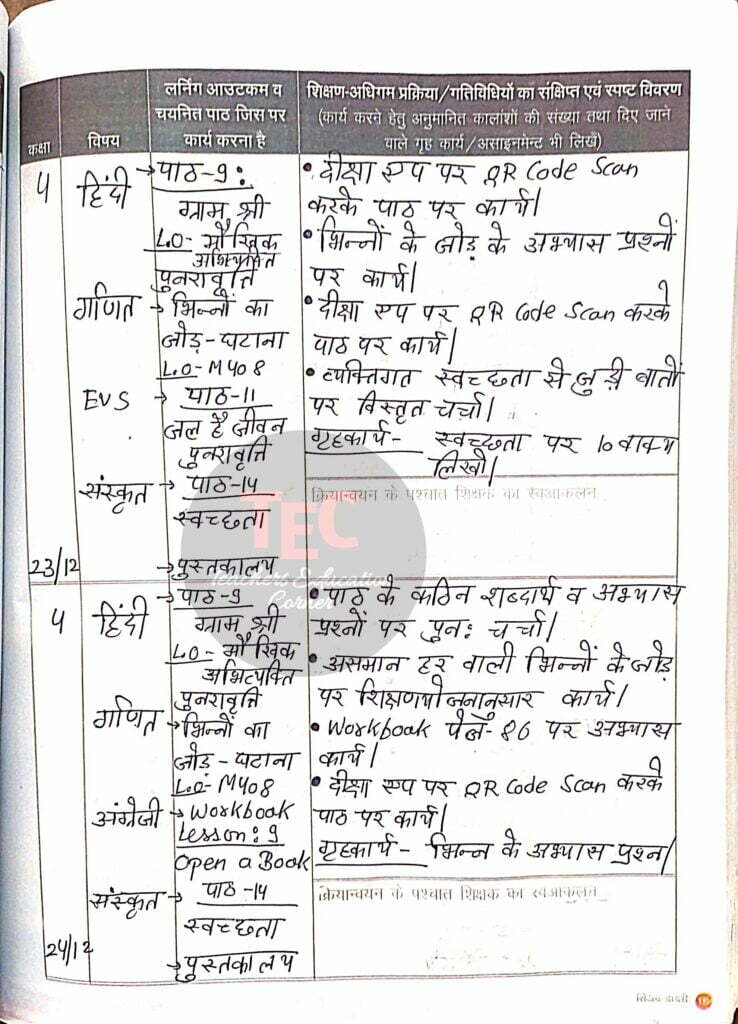 कक्षा
विषय
लर्निंग आउटकम व
चयनित पाठ जिस पर
कार्य करना है
शिक्षण-अधिगम प्रक्रिया/गतिविधियों का संक्षिप्त एवं स्पष्ट विवरण
(कार्य करने हेतु अनुमानित कालांशों की संख्या तथा दिए जाने
वाले गृह कार्य/असाइनमेंट भी लिखें)
4
23/12
हिंदी
→पाठ-9:
ग्राम श्री
LO- मौखिक
अभिव्यक्ति
पुनरावृत्ति
गणित → भिन्नों का
जोड़-घटाना
LO-M408
EVS → पाठ-11
जल है जीवन
पुनरावृत्ति
संस्कृत → पाठ-14
स्वच्छता
→पुस्तकालय
• दीक्षा एप पर QR Code Scan
करके पाठ पर कार्य।
• भिन्नों के जोड़ के अभ्यास प्रश्नों
पर कार्य।
• दीक्षा एप पर QR Code Scan करके
पाठ पर कार्य।
• व्यक्तिगत स्वच्छता से जुड़ी बातों
पर विस्तृत चर्चा।
गृहकार्य- स्वच्छता पर 10 वाक्य
लिखो।
क्रियान्वयन के पश्चात शिक्षक का स्वआकलन
TEC
Teachers Education
Corner
4
24/12
हिंदी
→पाठ-9
ग्राम श्री
LO- मौखिक
अभिव्यक्ति
पुनरावृत्ति
गणित → भिन्नों का
जोड़-घटाना
LO-M408
अंग्रेजी → Workbook
Lesson: 9
Open a Book
संस्कृत → पाठ-14
स्वच्छता
→पुस्तकालय
• पाठ के कठिन शब्दार्थ व अभ्यास
प्रश्नों पर पुन: चर्चा।
• असमान हर वाली भिन्नों के जोड़
पर शिक्षणयोजनानुसार कार्य।
• Workbook पेज-86 पर अभ्यास
कार्य।
• दीक्षा एप पर QR Code Scan करके
पाठ पर कार्य।
गृहकार्य- भिन्न के अभ्यास प्रश्न।
क्रियान्वयन के पश्चात शिक्षक का स्वआकलन
शिक्षक डायरी